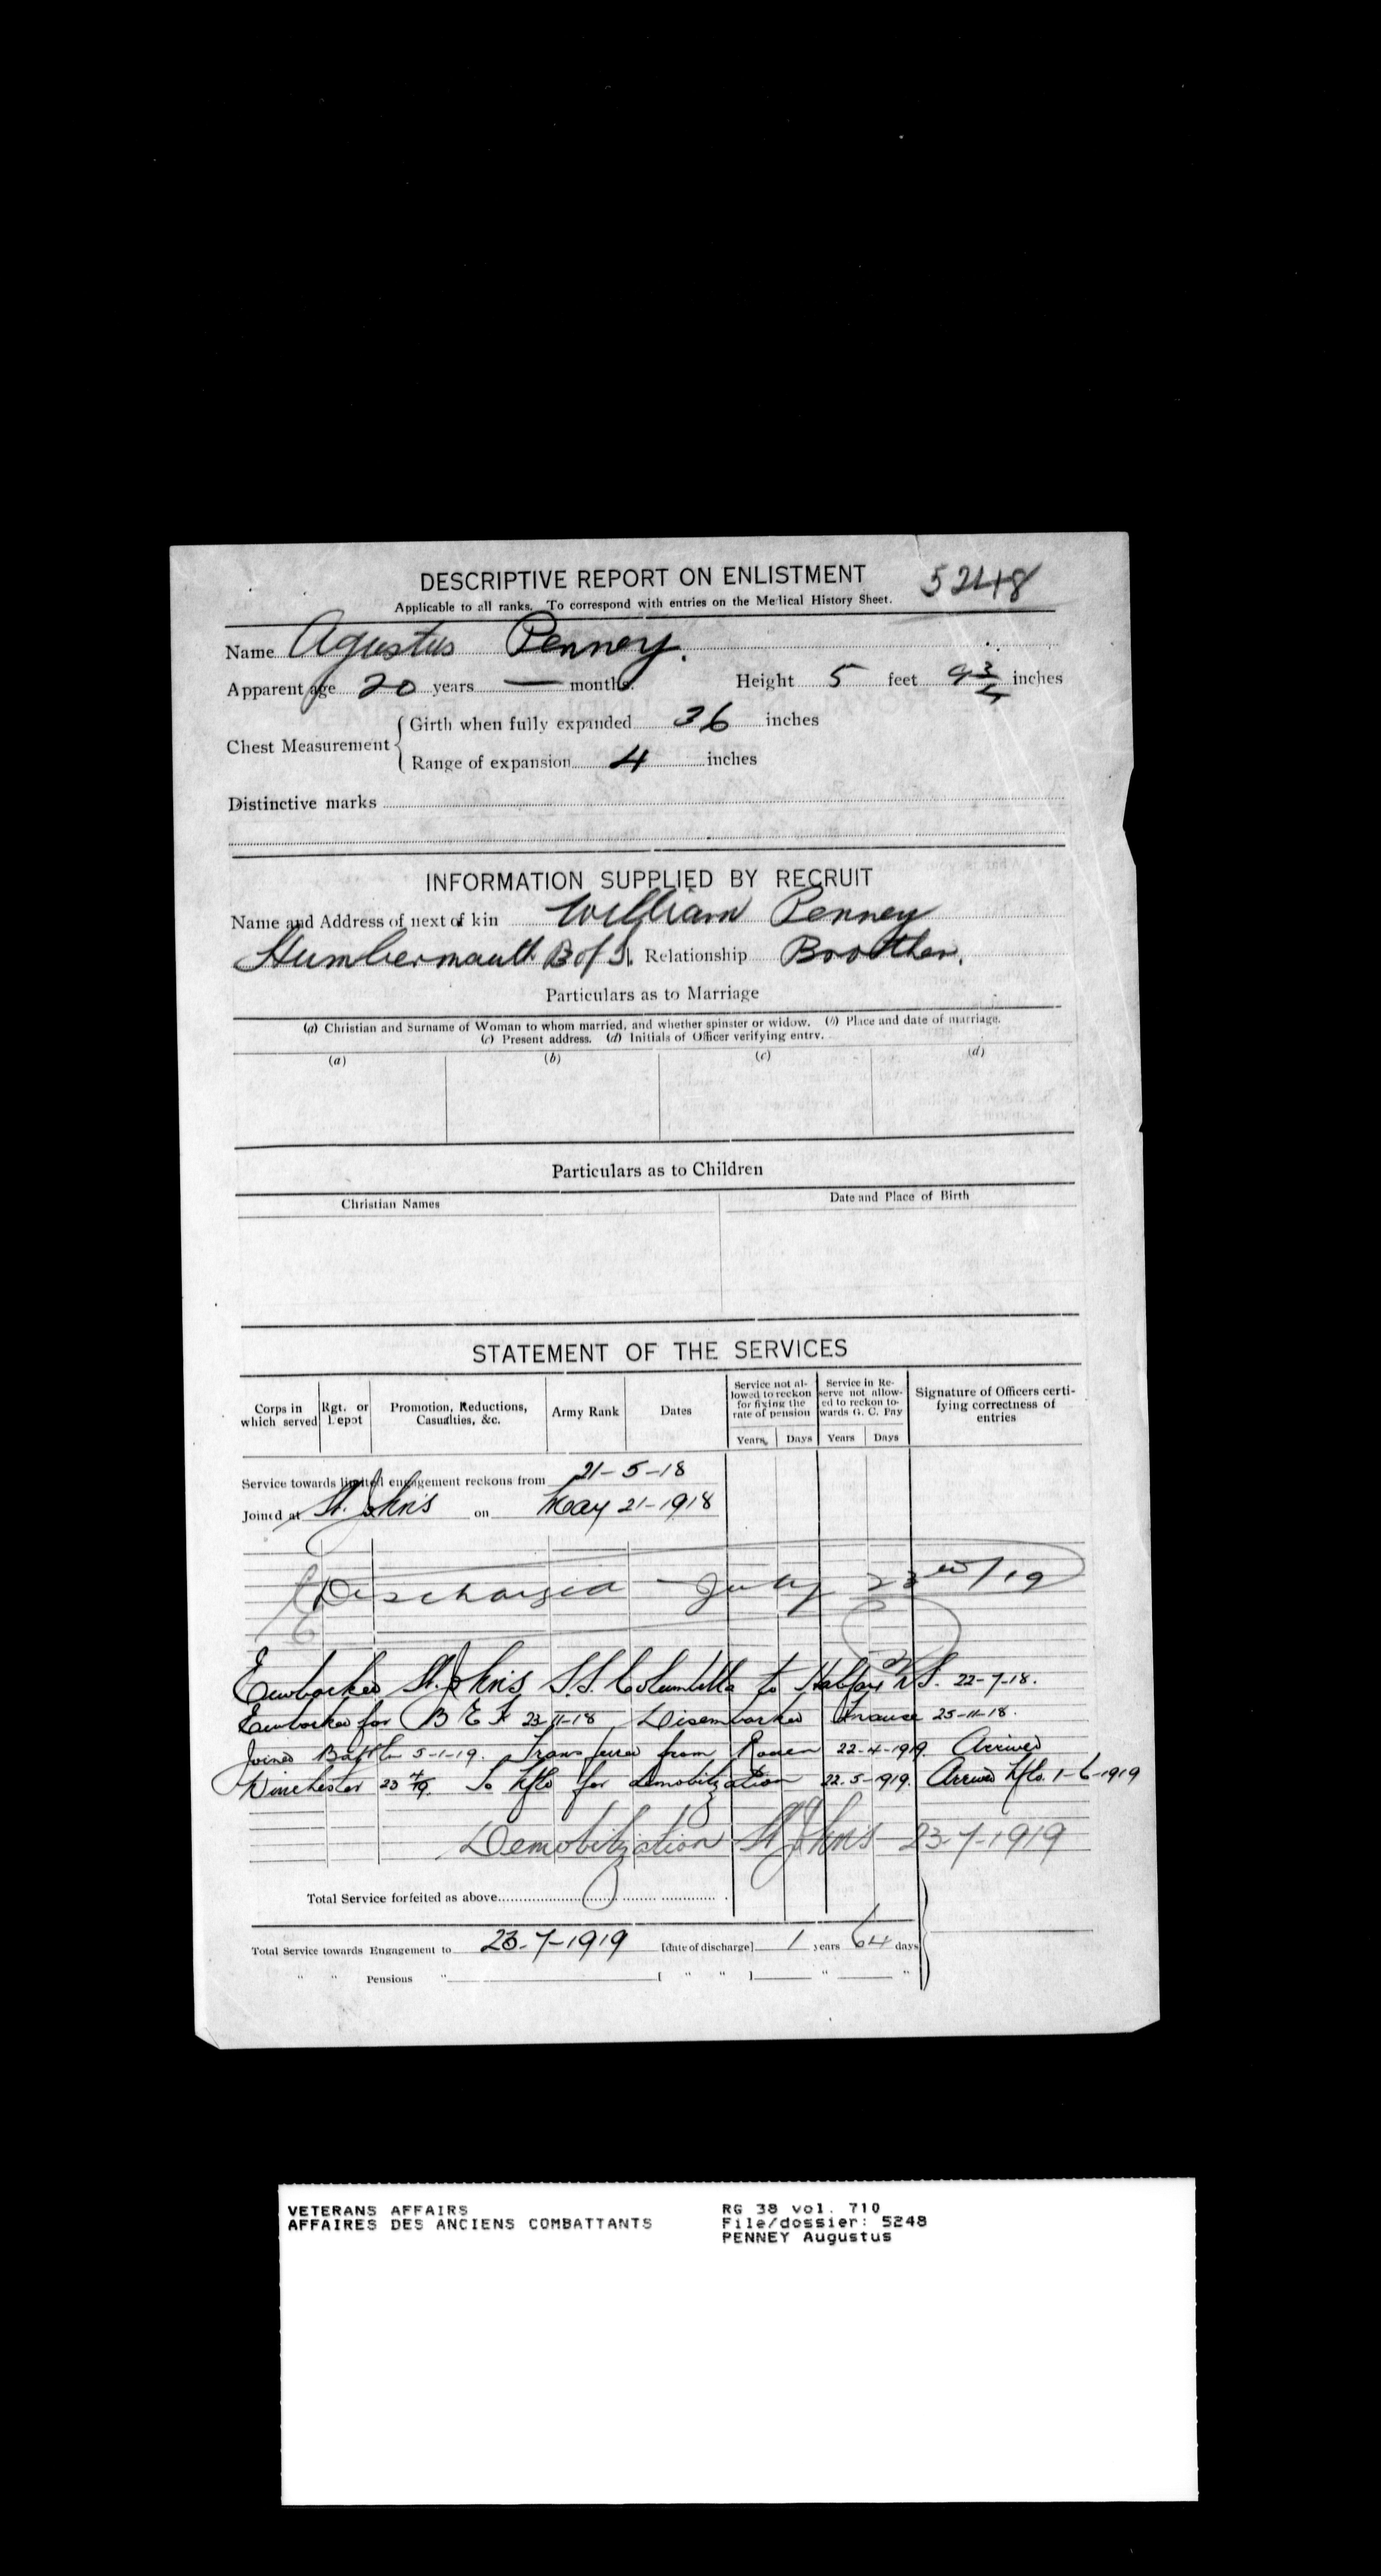 DESCRIPTIVE REPORT ON ENLISTMENT 5248
Applicable to all ranks. To correspond with entries on the Medical History Sheet.
Name Agustus Penney.
Apparent age 20 years — months. Height 5 feet 9 3/4 inches
Chest Measurement { Girth when fully expanded 36 inches
Range of expansion 4 inches
Distinctive marks
INFORMATION SUPPLIED BY RECRUIT
Name and Address of next of kin William Penney
Humbermouth B of I. Relationship Broother.
Particulars as to Marriage
(a) Christian and Surname of Woman to whom married, and whether spinster or widow. (b) Place and date of marriage.
(c) Present address. (d) Initials of Officer verifying entry.
(a) (b) (c) (d)
Particulars as to Children
Christian Names Date and Place of Birth
STATEMENT OF THE SERVICES
Corps in which served Rgt. or Depot Promotion, Reductions, Casualties, &c. Army Rank Dates Service not allowed to reckon for fixing the rate of pension Service in Reserve not allowed to reckon towards G. C. Pay Signature of Officers certifying correctness of entries
Years Days Years Days
Service towards limited engagement reckons from 21-5-18
Joined at St. John's on May 21-1918
Discharged July 23rd/19
Embarked St. John's S.S. Columbella to Halifax N.S. 22-7-18.
Embarked for B E F 23-11-18 Disembarked France 25-11-18.
Joined Battln 5-1-19. Transferred from Rouen 22-4-1919. Arrived
Winchester 23 4/19. To Nfld for demobilization 22.5-1919. Arrived Nfld. 1-6-1919
Demobilization St. John's 23-7-1919
Total Service forfeited as above
Total Service towards Engagement to 23-7-1919 [date of discharge] 1 years 64 days
" " Pensions " [ " " ] " "
VETERANS AFFAIRS RG 38 vol. 710
AFFAIRES DES ANCIENS COMBATTANTS File/dossier: 5248
PENNEY Augustus